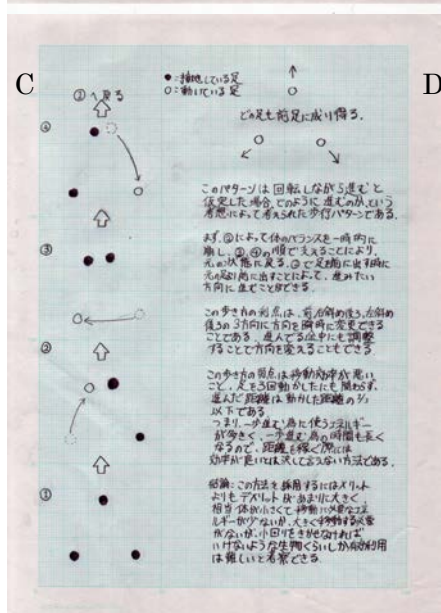 C
D
●:接地している足
○:動いている足
②へ戻る
④
③
②
①
どの足も前足に成り得る.
このパターンは回転しながら進むと
仮定した場合、どのように進むのか、という
考想によって考えられた歩行パターンである.
まず、②によって体のバランスを一時的に
崩し、③,④の順で支えることにより、
元の状態に戻る。②で足を前に出す時に
元の足より前に出すことによって、進みたい
方向に進むことができる.
この歩き方の利点は、前,右斜め後ろ,左斜め
後ろの3方向に方向を瞬時に変更できる
ことである。進んでる途中にも調整
することで方向を変えることもできる.
この歩き方の弱点は移動効率が悪い
こと、足を3回動かしたにも関わらず、
進んだ距離は動かした距離の
以下である
つまり、一歩進む為に使うエネルギー
が多きく、一歩進む為の時間も長く
なるので、距離を稼ぐ際には
効率が良いとは決して言えない方法である.
結論:この方法を採用するにはメリット
よりもデメリットがあまりに大きく、
相当体が小さくて移動に必要なエネ
ルギーが少ないか、大きく移動する必要
がないが、小回りをきかせなければ
いけないような生物くらいしか有効利用
は難しいと考察できる.